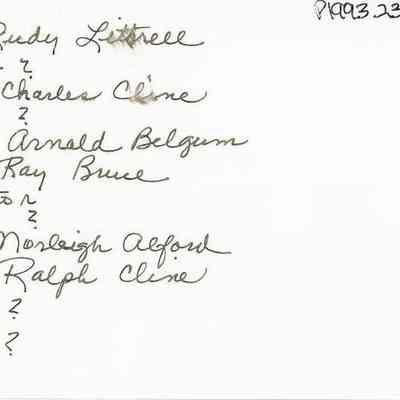 P1993.23
Rudy Littrell
?
Charles Cline
?
Arnold Belgum
Ray Bruce
?
Morleigh Alford
Ralph Cline
?
?